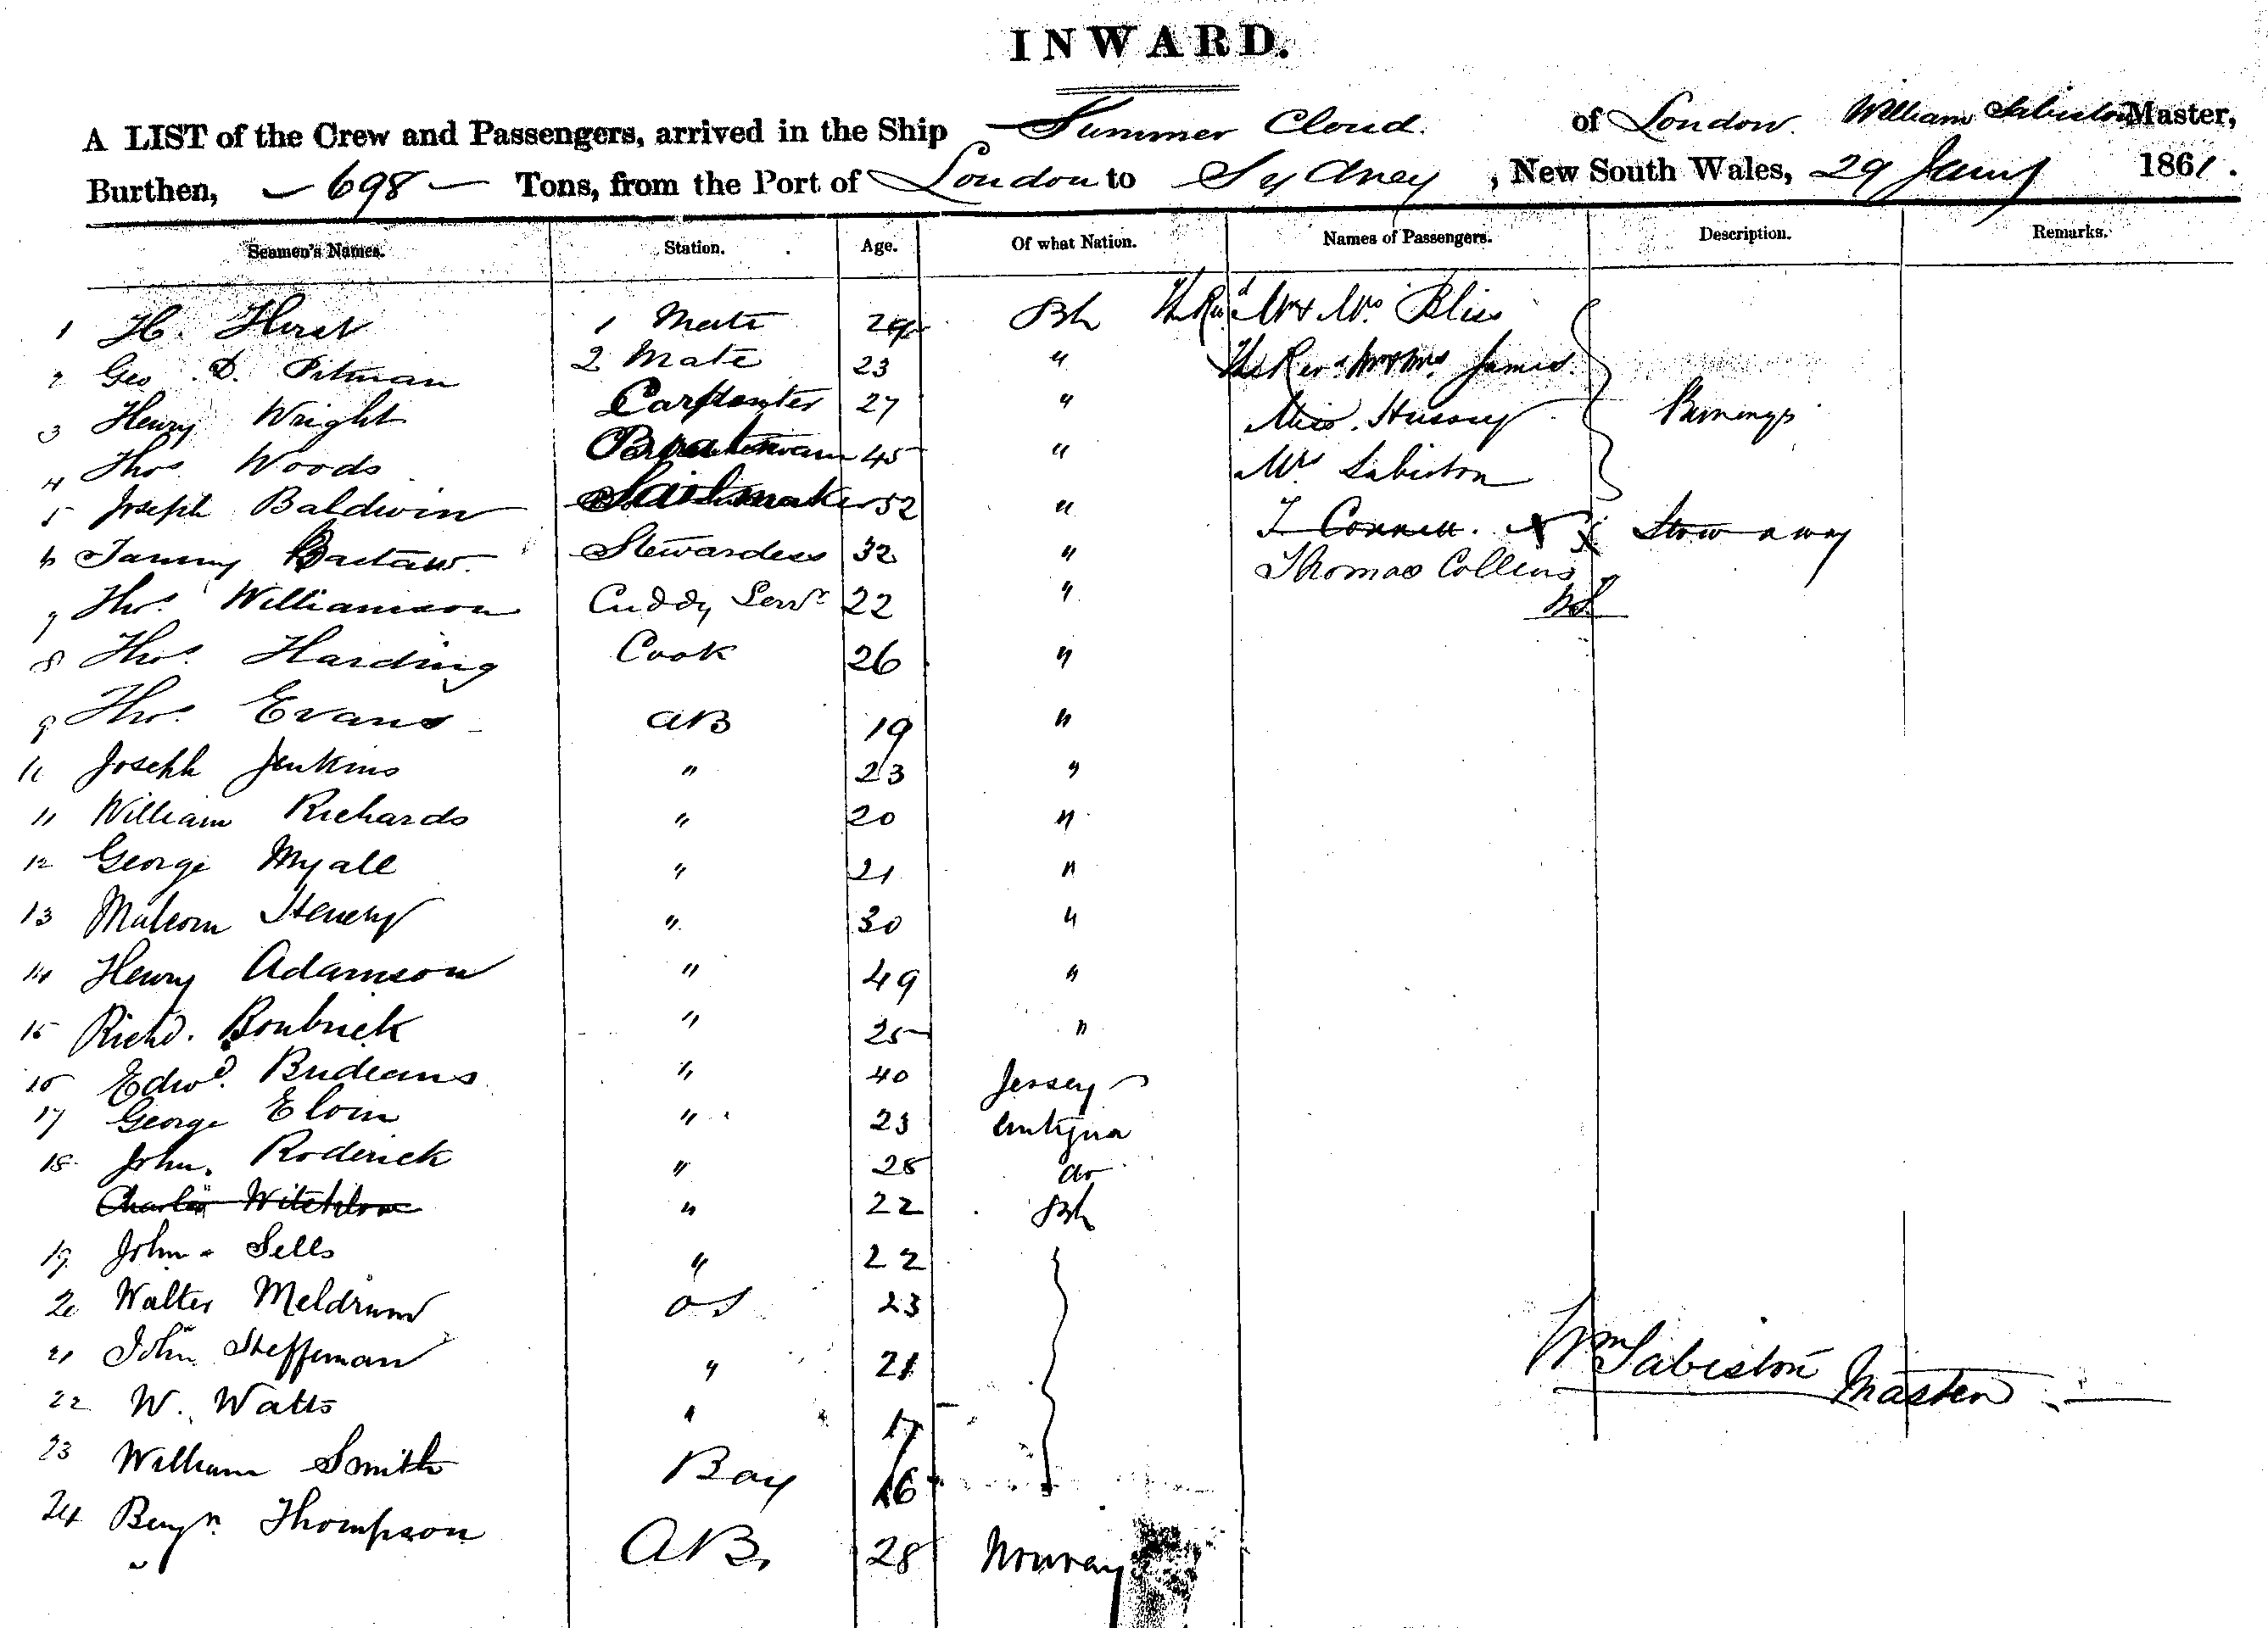 INWARD.
A LIST of the Crew and Passengers, arrived in the Ship Summer Cloud. of London. William Sabiston Master,
Burthen, 698 Tons, from the Port of London to Sydney, New South Wales, 29 Jany 1861.
Seamen's Names. Station. Age. Of what Nation. Names of Passengers. Description. Remarks.
1 H. Hirst 1 Mate Bh The Revd Mr & Mrs Bliss
2 Geo. D. Pitman 2 Mate 23 " The Revd Mr & Mrs James.
3 Henry Wright Carpenter 27 " Miss. Hussey
4 Thos. Woods 45 " Mrs Sabiston
5 Joseph Baldwin Sailmaker 52 " T Connell. Stowaway
6 Stewardess 32 " Thomas Collins
7 Thos. Williamson Cuddy Servt 22 " WS
8 Thos. Harding Cook 26 "
9 Thos. Evans AB 19 "
Joseph Jenkins " 23 "
11 William Richards " 20 "
12 George Myall " 21 "
13 Malcom Henery " 30 "
14 Henry Adamson " 49 "
15 Richd. " 25 "
16 Edwd. " 40 Jersey
17 George " 23 Antigua
18 John. Roderick " 28 do
Charles " 22 Bh
19 John Sells " 22
20 Walter Meldrum OS 23
21 John Steffeman " 21
22 W. Watts " 17
23 William Smith Boy 16
24 Benjn. Thompson AB. 28 Norway
Wm Sabiston Master